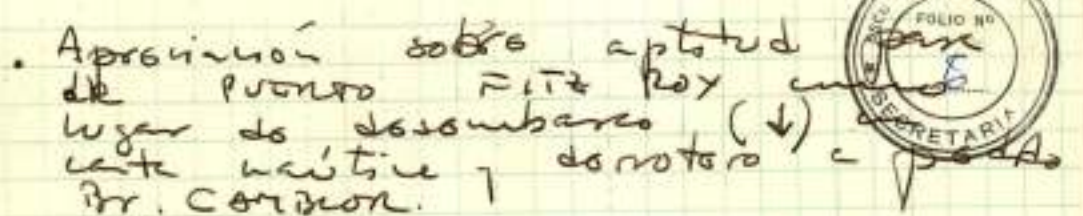 . Apreciación sobre aptitud para
de PUERTO FITZ ROY como
lugar de desembarco (↓)
carta náutica y derrotero a pedido
Br.
FOLIO Nº
SECRETARIA